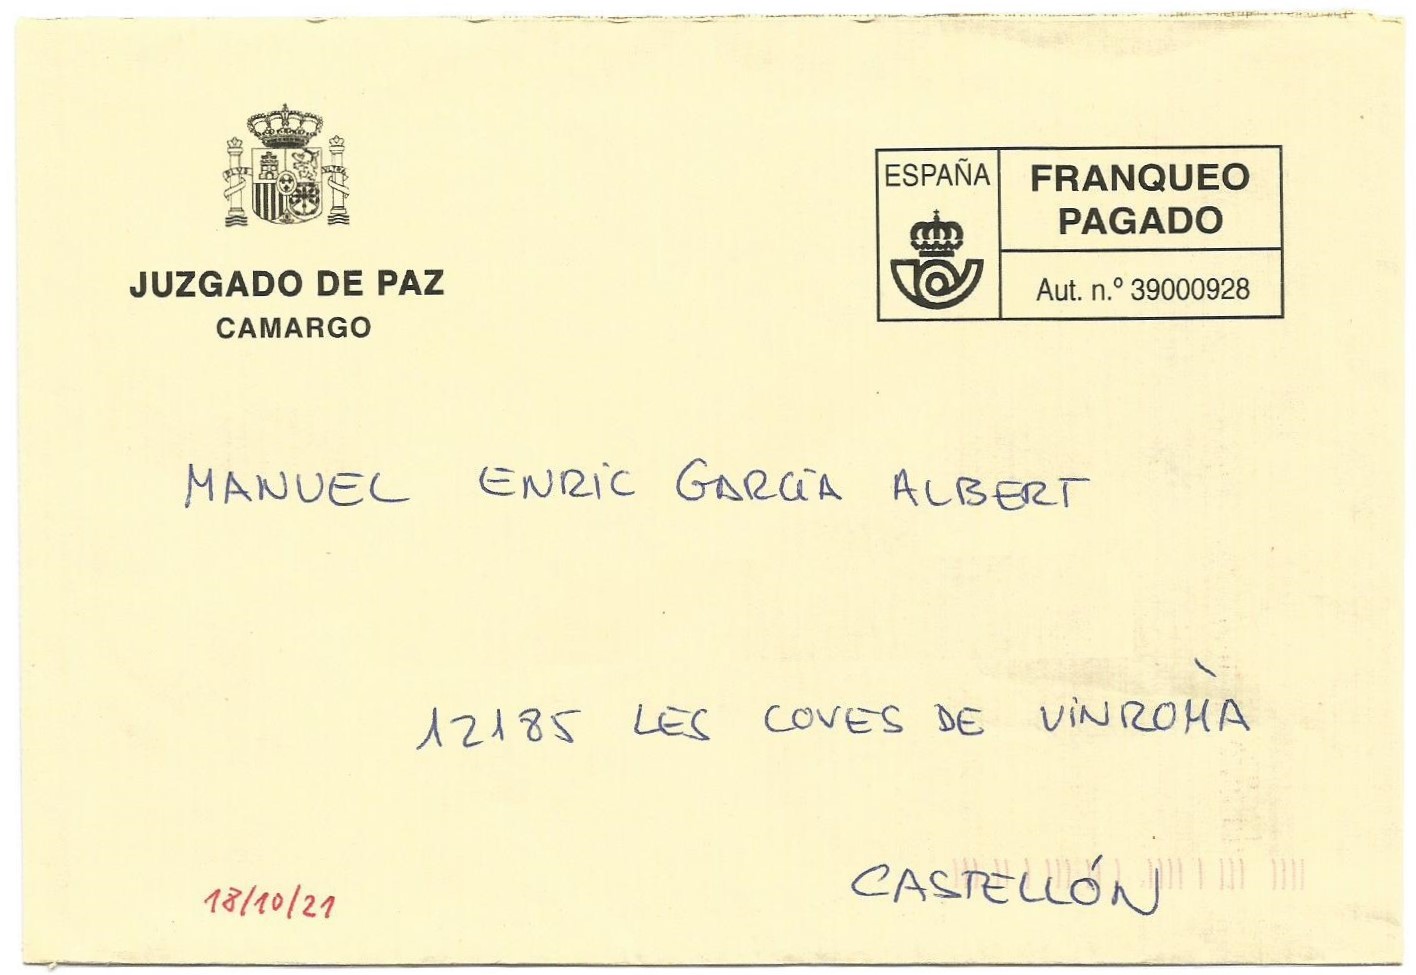 PLVS VLTRA
JUZGADO DE PAZ
CAMARGO
ESPAÑA
FRANQUEO
PAGADO
Aut. n.º 39000928
MANUEL ENRIC GARCÍA ALBERT
12185 LES COVES DE VINROMÀ
CASTELLÓN
18/10/21